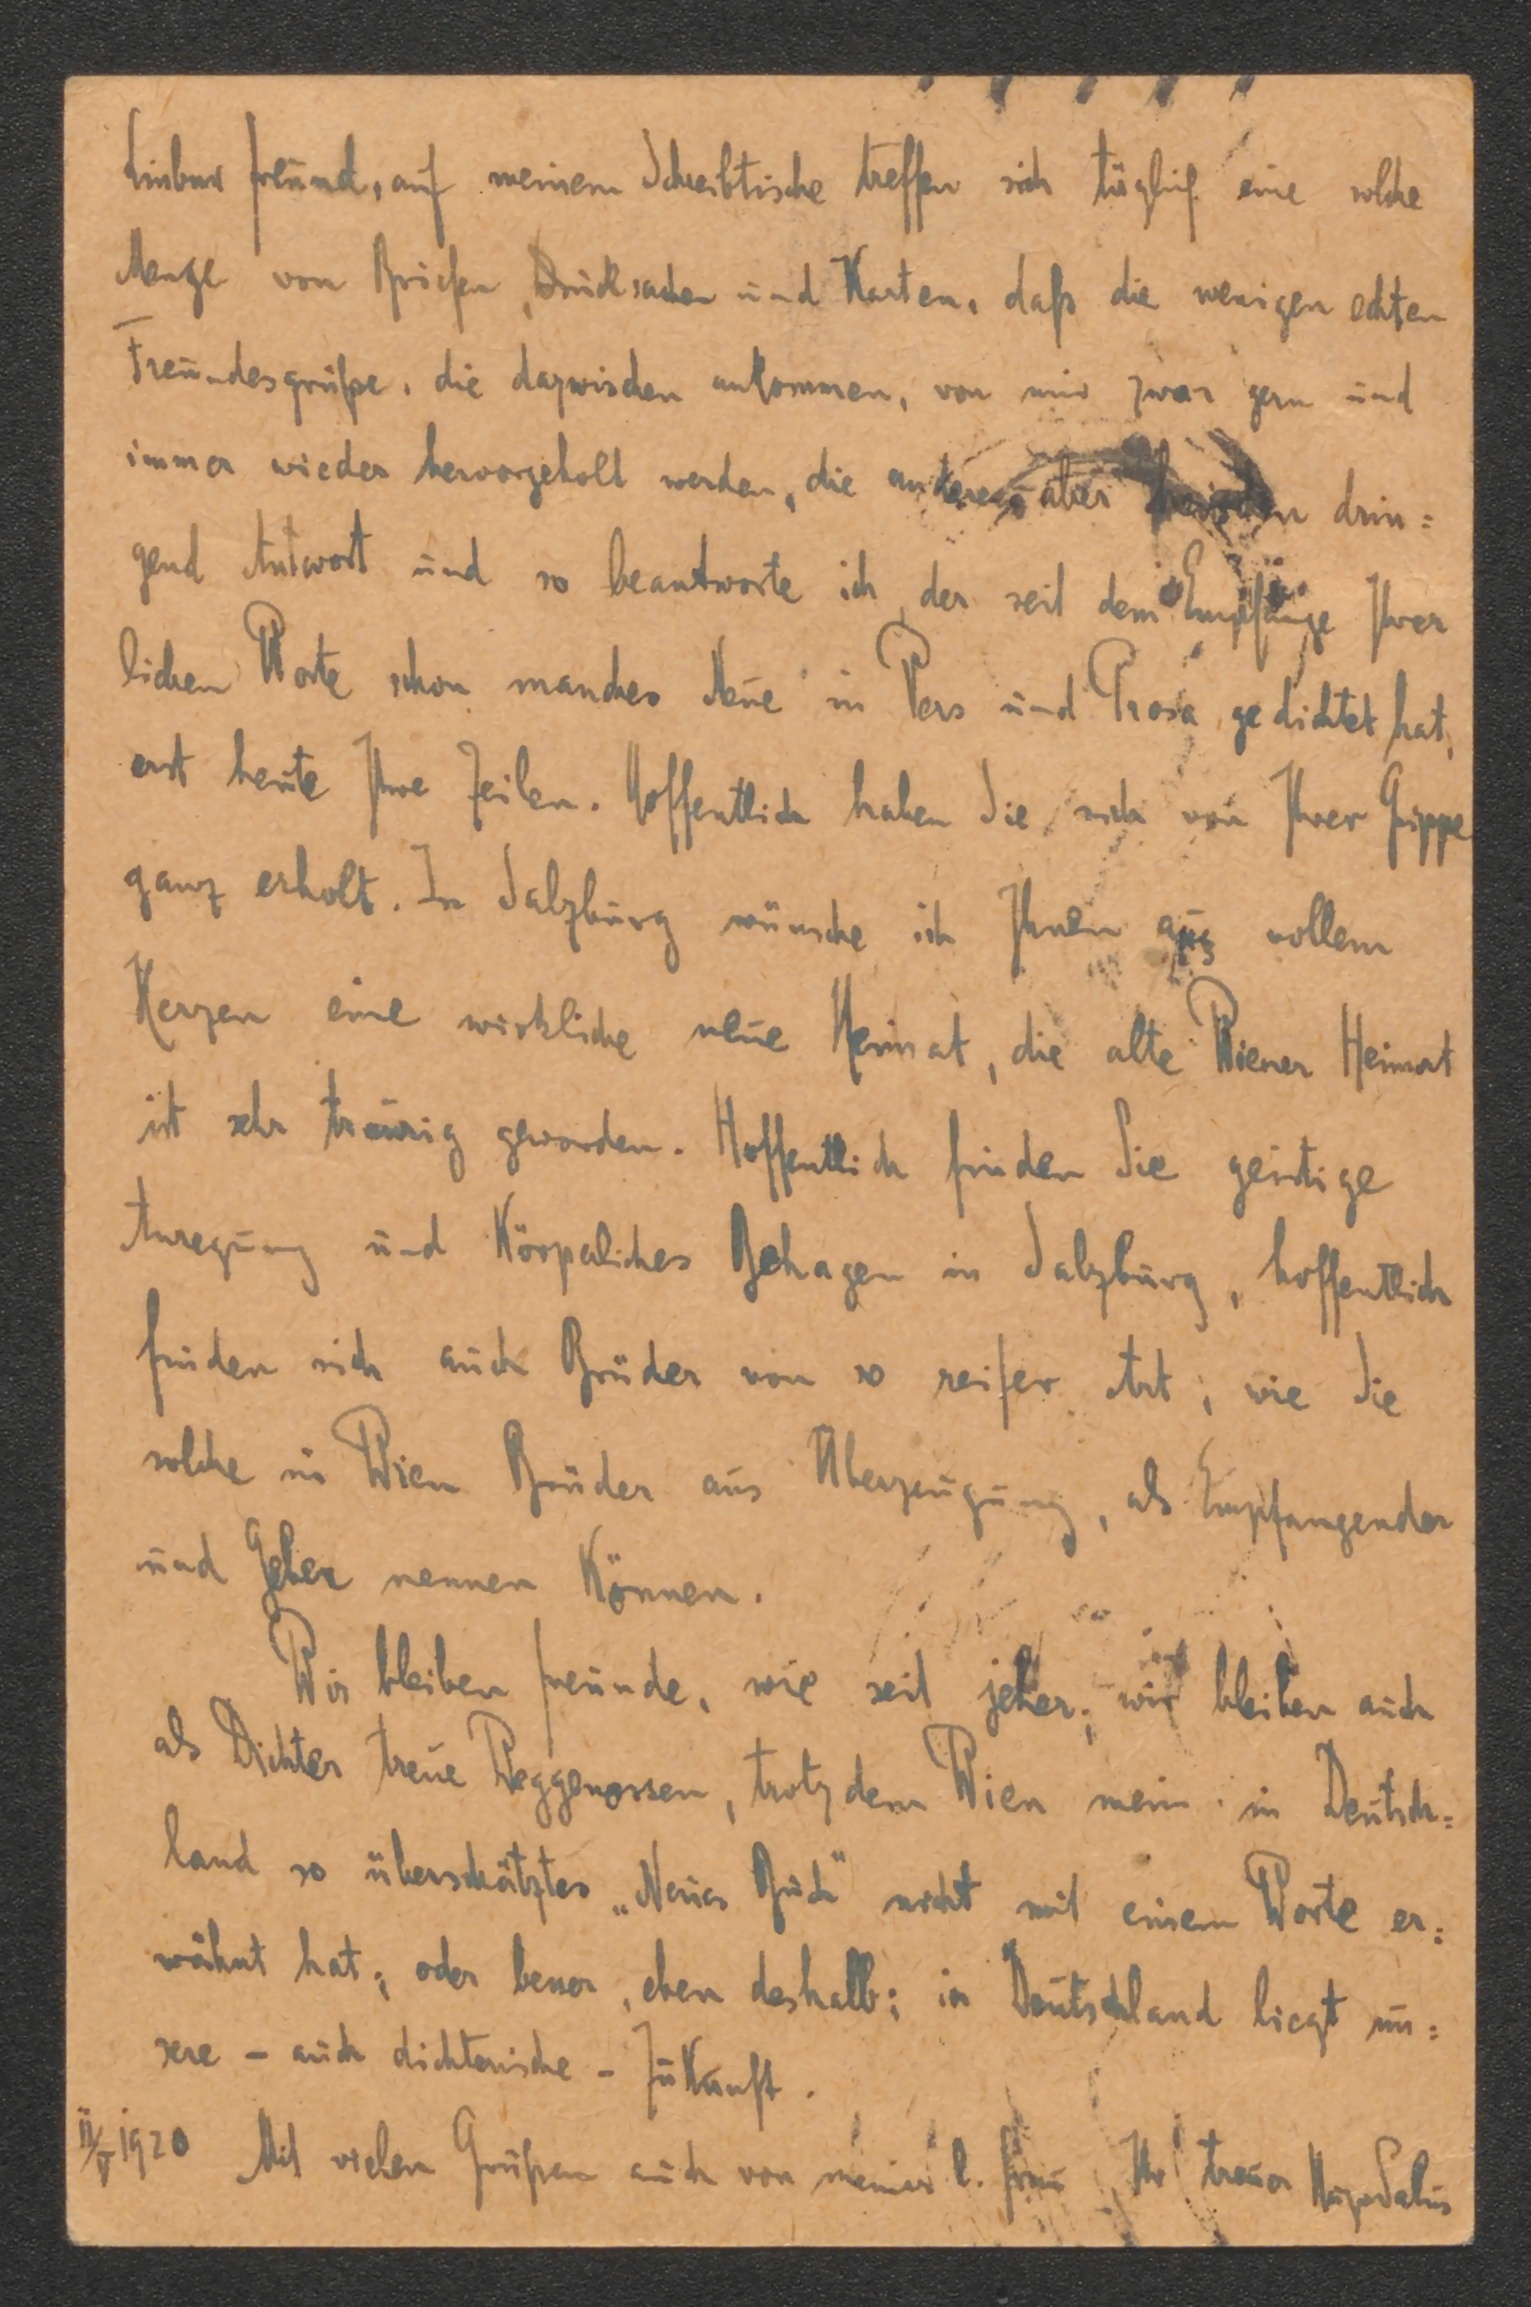 Lieber Freund, auf meinem Schreibtische treffen sich täglich eine solche
Menge von Briefen, Drucksachen und Karten, daß die wenigen echten
Freundesgrüße, die dazwischen ankommen, von mir zwar gern und
immer wieder hervorgeholt werden, die anderen aber heischen drin=
gend Antwort und so beantworte ich, der seit dem Empfange Ihrer
lieben Worte schon manches Neue in Vers und Prosa gedichtet hat,
erst heute Ihre Zeilen. Hoffentlich haben Sie sich von Ihrer Grippe
ganz erholt. In Salzburg wünsche ich Ihnen aus vollem
Herzen eine wirkliche neue Heimat, die alte Wiener Heimat
ist sehr traurig geworden. Hoffentlich finden Sie geistige
Anregung und Körperliches Behagen in Salzburg, hoffentlich
finden sich auch Brüder von so reifer Art, wie Sie
solche in Wien Brüder aus Überzeugung, als Empfangender
und Geber nennen Können.
Wir bleiben Freunde, wie seit jeher; wir bleiben auch
als Dichter treue Weggenossen, trotzdem Wien mein in Deutsch=
land so überschätztes „Neues Buch" nicht mit einem Worte er=
wähnt hat; oder besser, eben deshalb; in Deutschland liegt un=
sere – auch dichterische – ZuKunft.
11/V 1920 Mit vielen Grüßen auch von meiner l. Frau Ihr treuer Hugo Salus